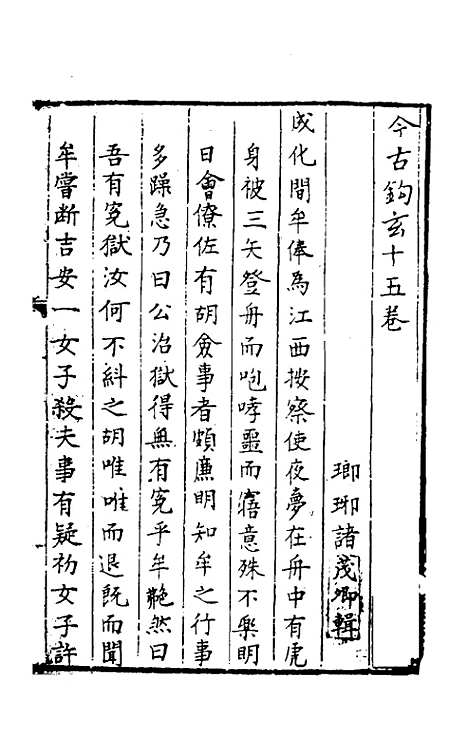 今古鈎玄十五卷
瑯琊諸茂卿輯
成化間牟俸為江西按察使夜夢在舟中有虎
身被三矢登舟而咆哮噩而寤意殊不樂明
日會僚佐有胡僉事者頗廉明知牟之行事
多躁急乃曰公治獄得無有寃乎牟艴然曰
吾有寃獄汝何不糾之胡唯唯而退旣而聞
牟嘗断吉安一女子殺夫事有疑初女子許